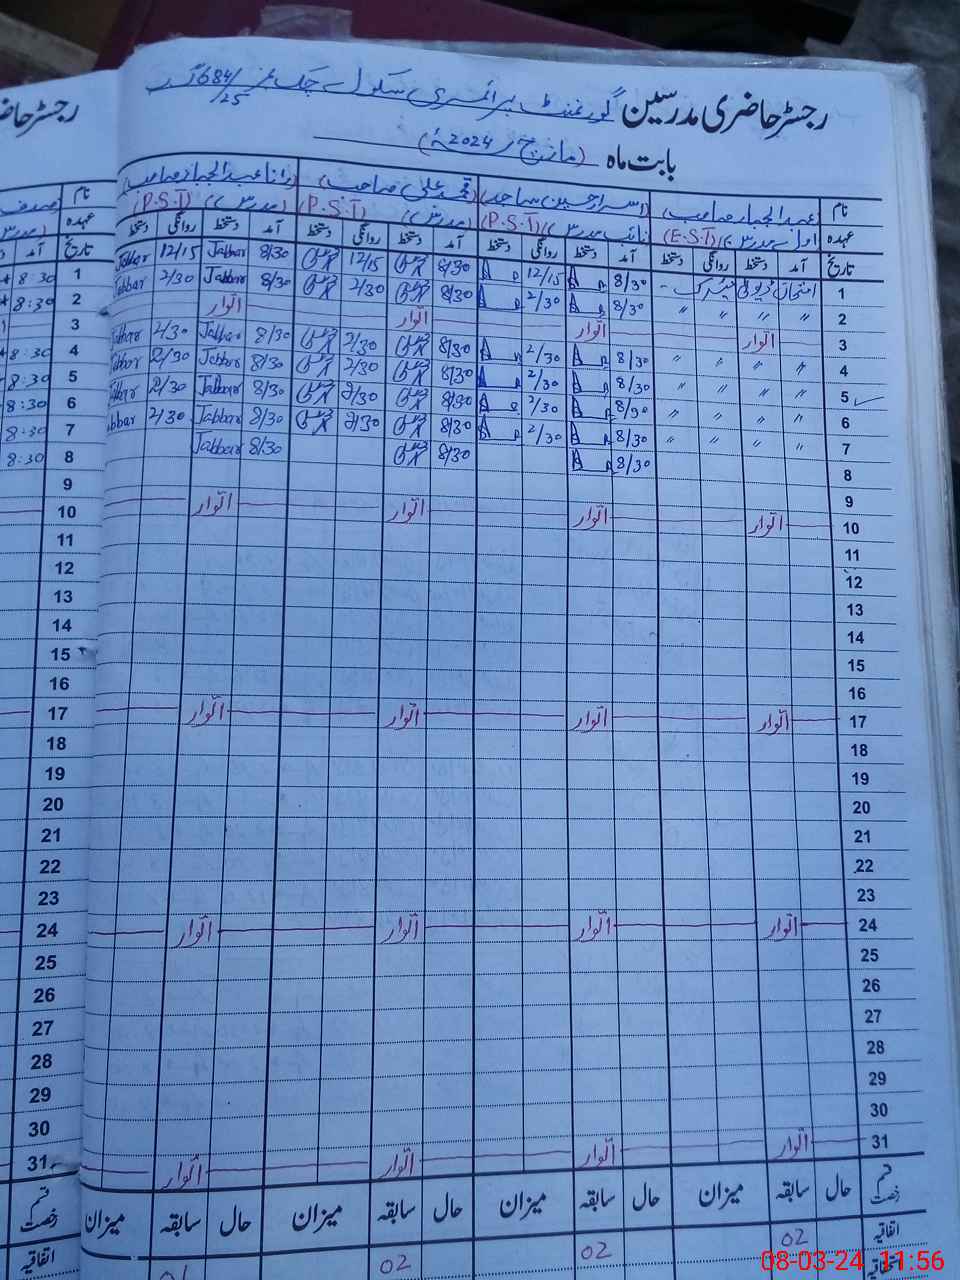 رجسٹر حاضری مدرسین گورنمنٹ پرائمری سکول چک نمبر 684/25 گ ب
بابت ماہ (مارچ 2024ء)
نام عبدالجبار صاحب اسرار حسین صاحب محمد علی صاحب رانا عبدالجبار صاحب
عہدہ اول مدرس (E.S.T) نائب مدرس (P.S.T) (مدرس) (P.S.T) (مدرس) (P.S.T)
تاریخ آمد دستخط روانگی دستخط آمد دستخط روانگی دستخط آمد دستخط روانگی دستخط آمد دستخط روانگی دستخط
1 امتحان ڈیوٹی میٹرک 8/30 12/15 8/30 12/15 8/30 Jabbar 12/15 Jabbar
2 〃 〃 〃 〃 8/30 2/30 8/30 2/30 8/30 Jabbar 2/30 Jabbar
3 اتوار اتوار اتوار اتوار
4 〃 〃 〃 8/30 2/30 8/30 2/30 8/30 Jabbar 2/30 Jabbar
5 〃 〃 〃 8/30 2/30 8/30 2/30 8/30 Jabbar 2/30 Jabbar
6 〃 〃 〃 8/30 2/30 8/30 2/30 8/30 Jabbar 2/30 Jabbar
7 〃 〃 〃 8/30 2/30 8/30 2/30 8/30 Jabbar 2/30 Jabbar
8 8/30 8/30 8/30 Jabbar
9
10 اتوار اتوار اتوار اتوار
11
12
13
14
15
16
17 اتوار اتوار اتوار اتوار
18
19
20
21
22
23
24 اتوار اتوار اتوار اتوار
25
26
27
28
29
30
31 اتوار اتوار اتوار اتوار
قسم رخصت حال سابقہ میزان حال سابقہ میزان حال سابقہ میزان حال سابقہ میزان
اتفاقیہ 02 02 02
رجسٹر حاضری
نام
عہدہ
تاریخ آمد
1 8:30
2 8:30
3
4 8:30
5 8:30
6 8:30
7 8:30
8 8:30
9
10
11
12
13
14
15
16
17
18
19
20
21
22
23
24
25
26
27
28
29
30
31
قسم رخصت
اتفاقیہ
08-03-24 11:56